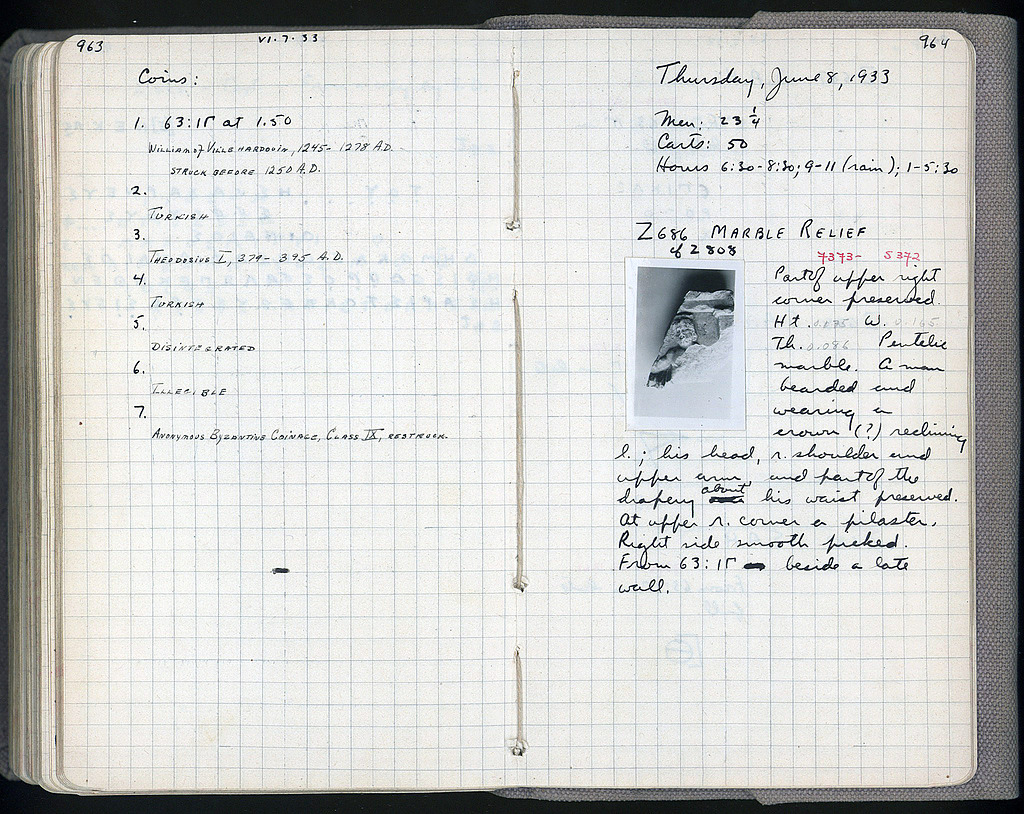 963
VI.7.33
Coins:
1. 63:ΙΓ at 1.50
William of Villehardouin, 1245-1278 A.D.
Struck before 1250 A.D.
2.
Turkish
3.
Theodosius I, 379-395 A.D.
4.
Turkish
5.
Disintegrated
6.
Illegible
7.
Anonymous Byzantine Coinage, Class IX, restruck.
964
Thursday, June 8, 1933
Men: 23 1/4
Carts: 50
Hours 6:30-8:30; 9-11 (rain); 1-5:30
Z686 MARBLE RELIEF
cf Z 808
7373- S372
Part of upper right
corner preserved.
Ht. 0.135 W. 0.165
Th. 0.086 Pentelic
marble. A man
bearded and
wearing a
crown (?) reclining
l.; his head, r. shoulder and
upper arm, and part of the
drapery about his waist preserved.
At upper r. corner a pilaster.
Right side smooth picked.
From 63:ΙΓ beside a late
wall.